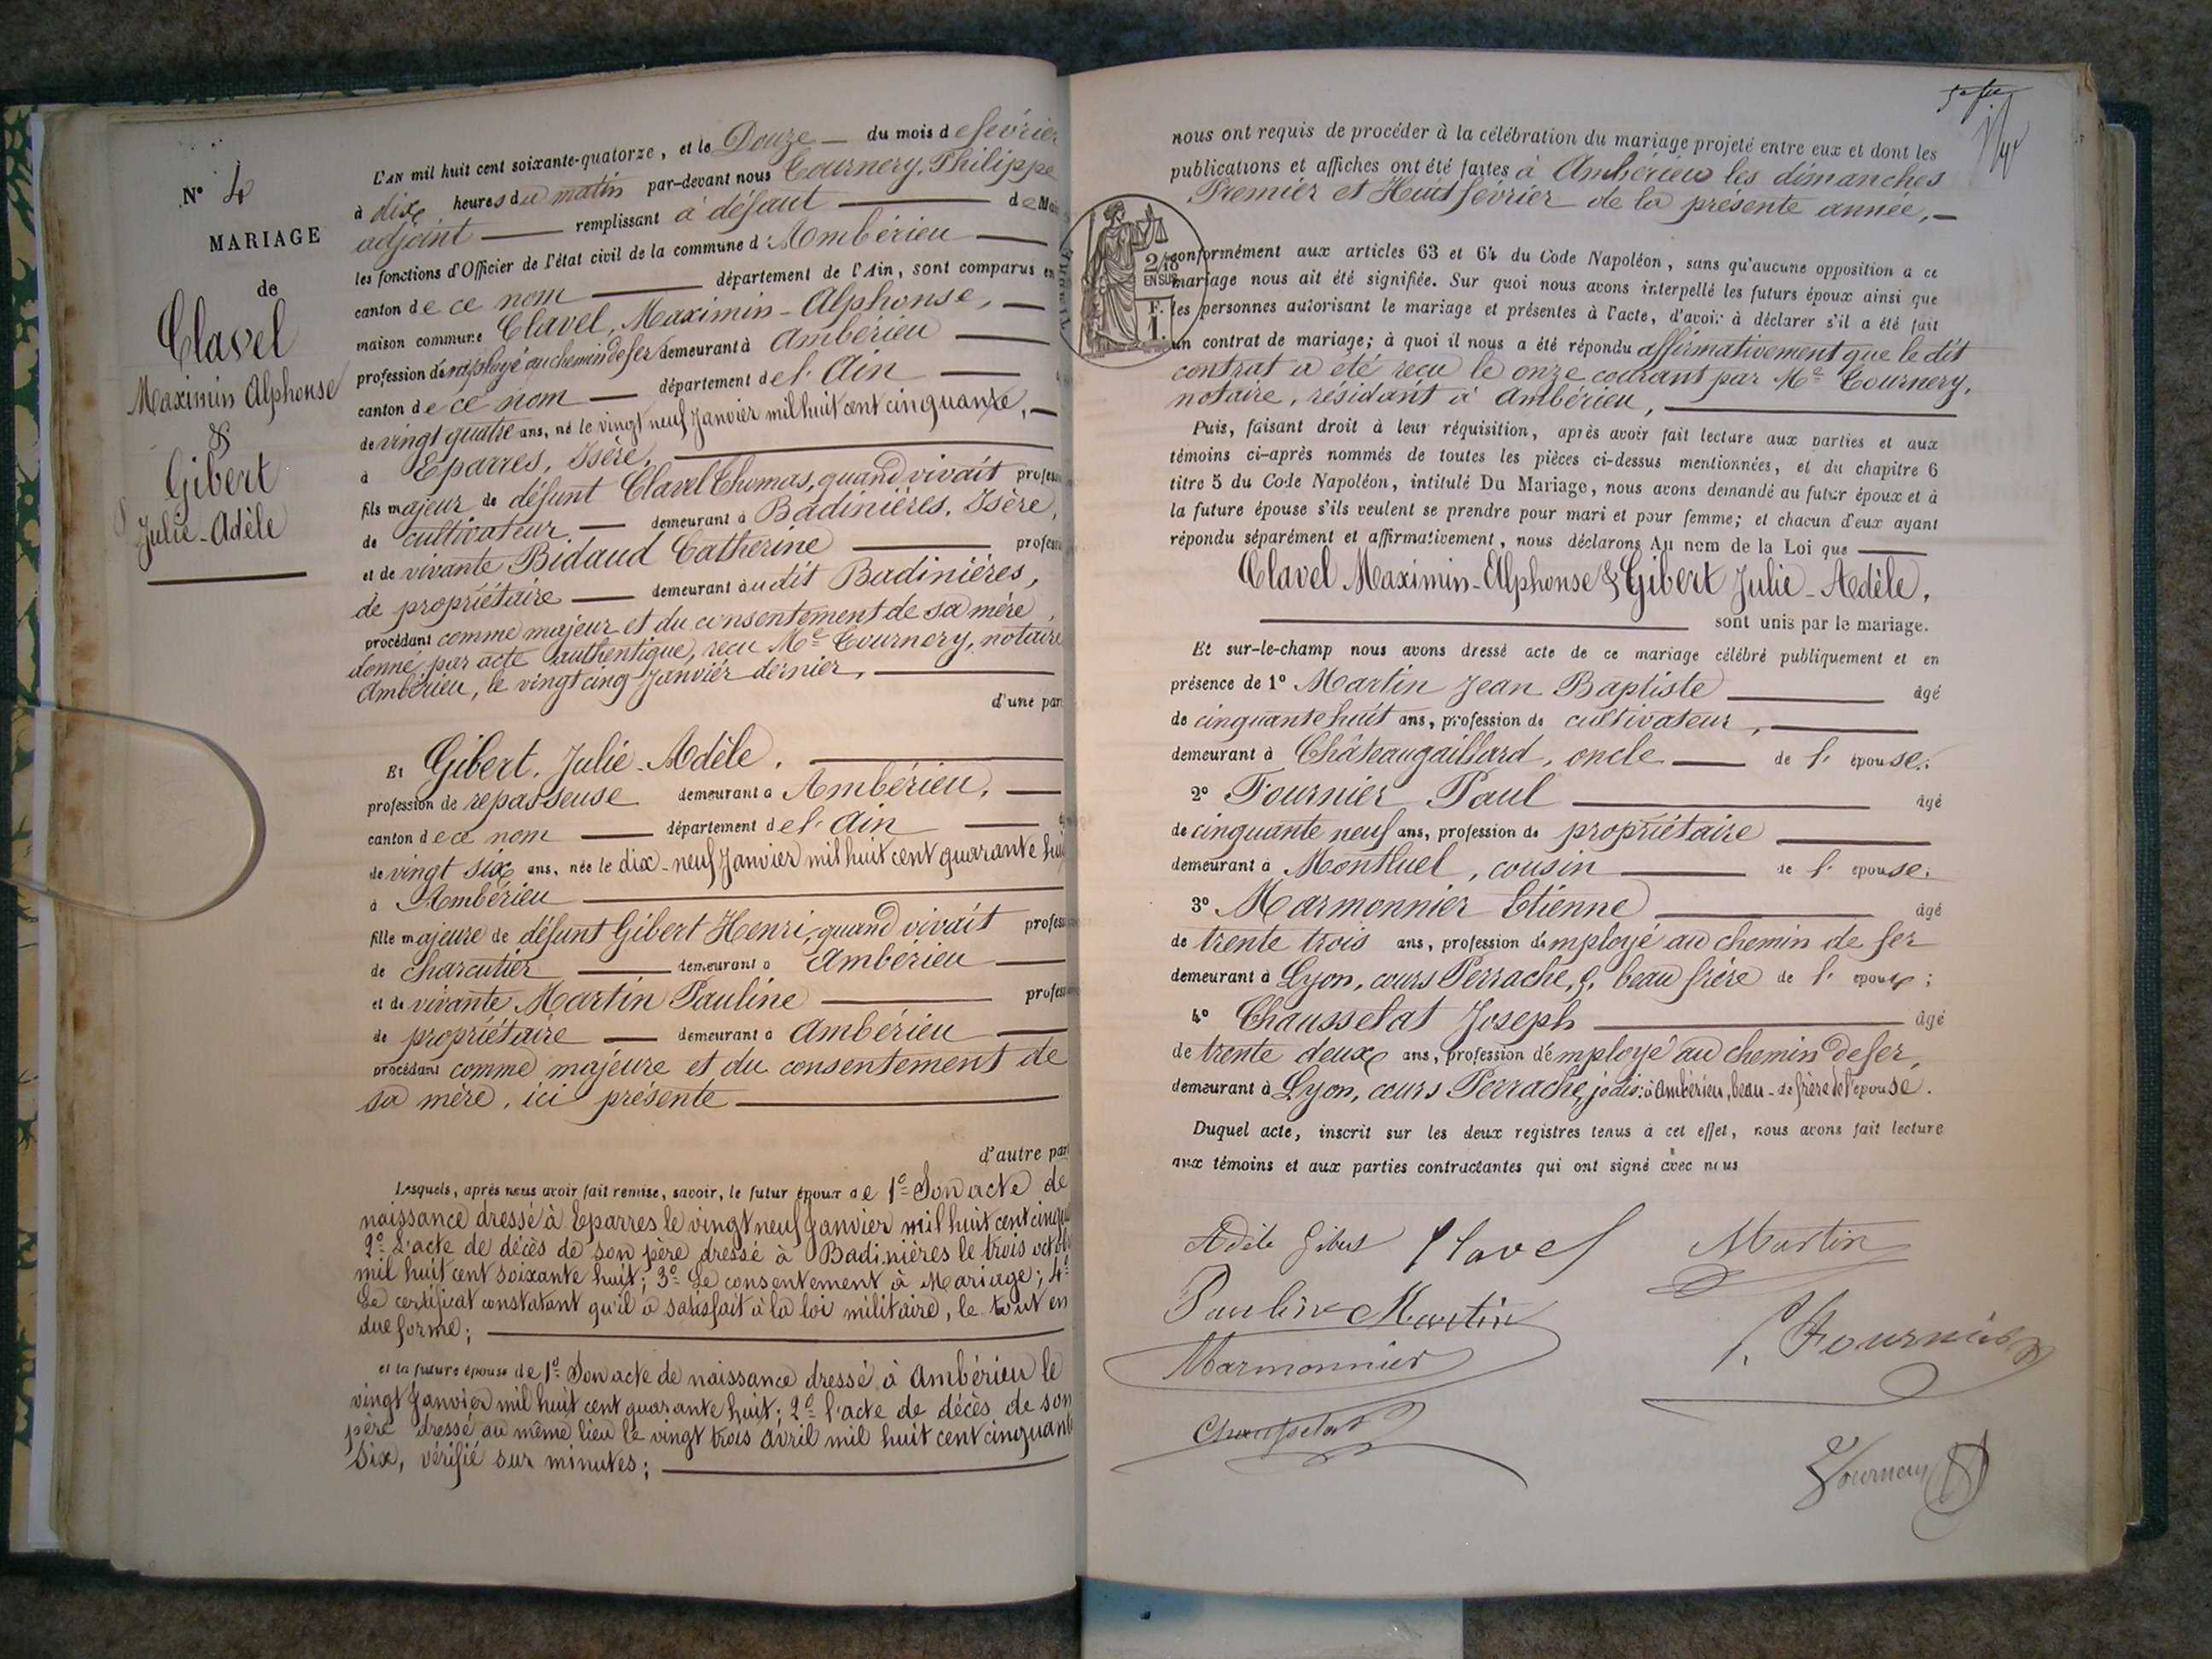 N° 4
MARIAGE
de
Clavel
Maximin Alphonse
&
Gibert
Julie-Adèle
L'AN mil huit cent soixante-quatorze, et le Douze — du mois de février
à dix heures du matin par-devant nous Tournery, Philippe
adjoint — remplissant à défaut — de Mai
les fonctions d'Officier de l'état civil de la commune d'Ambérieu —
canton de ce nom — département de l'Ain, sont comparus en
maison commune Clavel, Maximin-Alphonse, —
profession d'employé au chemin de fer demeurant à Ambérieu —
canton de ce nom — département de l'Ain —
de vingt quatre ans, né le vingt neuf Janvier mil huit cent cinquante, —
à Eparres, Isère, —
fils majeur de défunt Clavel Thomas, quand vivait profess
de cultivateur — demeurant à Badinières, Isère,
et de vivante Bidaud Catherine — profess
de propriétaire — demeurant audit Badinières,
procédant comme majeur et du consentement de sa mère
donné par acte authentique, reçu Me Tournery, notaire
Ambérieu, le vingt cinq Janvier dernier, —
d'une par
Et Gibert, Julie-Adèle. —
profession de repasseuse demeurant à Ambérieu, —
canton de ce nom — département de l'Ain —
de vingt six ans, née le dix-neuf Janvier mil huit cent quarante hui
à Ambérieu —
fille majeure de défunt Gibert Henri, quand vivait profess
de charcutier — demeurant à Ambérieu —
et de vivante Martin Pauline — profess
de propriétaire — demeurant à Ambérieu —
procédant comme majeure et du consentement de
sa mère, ici présente —
d'autre part
Lesquels, après nous avoir fait remise, savoir, le futur époux de 1° Son acte de
naissance dressé à Eparres le vingt neuf Janvier mil huit cent cinqu
2° L'acte de décès de son père dressé à Badinières le trois octob
mil huit cent soixante huit; 3° Le consentement à Mariage; 4°
Le certificat constatant qu'il a satisfait à la loi militaire, le tout en
due forme; —
et la future épouse de 1° Son acte de naissance dressé à Ambérieu le
vingt Janvier mil huit cent quarante huit; 2° l'acte de décès de son
père dressé au même lieu le vingt trois Avril mil huit cent cinquant
six, vérifié sur minutes; —
nous ont requis de procéder à la célébration du mariage projeté entre eux et dont les
publications et affiches ont été faites à Ambérieu les dimanches
Premier et Huit février de la présente année, —
2/10
EN SUS
F.
1.
conformément aux articles 63 et 64 du Code Napoléon, sans qu'aucune opposition à ce
mariage nous ait été signifiée. Sur quoi nous avons interpellé les futurs époux ainsi que
les personnes autorisant le mariage et présentes à l'acte, d'avoir à déclarer s'il a été fait
un contrat de mariage; à quoi il nous a été répondu affirmativement que le dit
contrat a été reçu le onze courant par Me Tournery,
notaire, résidant à Ambérieu, —
Puis, faisant droit à leur réquisition, après avoir fait lecture aux parties et aux
témoins ci-après nommés de toutes les pièces ci-dessus mentionnées, et du chapitre 6
titre 5 du Code Napoléon, intitulé Du Mariage, nous avons demandé au futur époux et à
la future épouse s'ils veulent se prendre pour mari et pour femme; et chacun d'eux ayant
répondu séparément et affirmativement, nous déclarons Au nom de la Loi que —
Clavel Maximin-Alphonse & Gibert Julie-Adèle,
— sont unis par le mariage.
Et sur-le-champ nous avons dressé acte de ce mariage célébré publiquement et en
présence de 1° Martin Jean Baptiste — âgé
de cinquante huit ans, profession de cultivateur, —
demeurant à Châteaugaillard, oncle — de l'épouse.
2° Fournier Paul — âgé
de cinquante neuf ans, profession de propriétaire —
demeurant à Montluel, cousin — de l'épouse.
3° Marmonnier Etienne — âgé
de trente trois ans, profession d'employé au chemin de fer
demeurant à Lyon, cours Perrache, 9, beau frère de l'époux;
4° Chausselat Joseph — âgé
de trente deux ans, profession d'employé au chemin de fer,
demeurant à Lyon, cours Perrache, jadis à Ambérieu, beau-frère de l'épouse.
Duquel acte, inscrit sur les deux registres tenus à cet effet, nous avons fait lecture
aux témoins et aux parties contractantes qui ont signé avec nous
Adèle Gibert Clavel Martin
Pauline Martin
P. Fournier
Marmonnier
Chausselat
Tournery